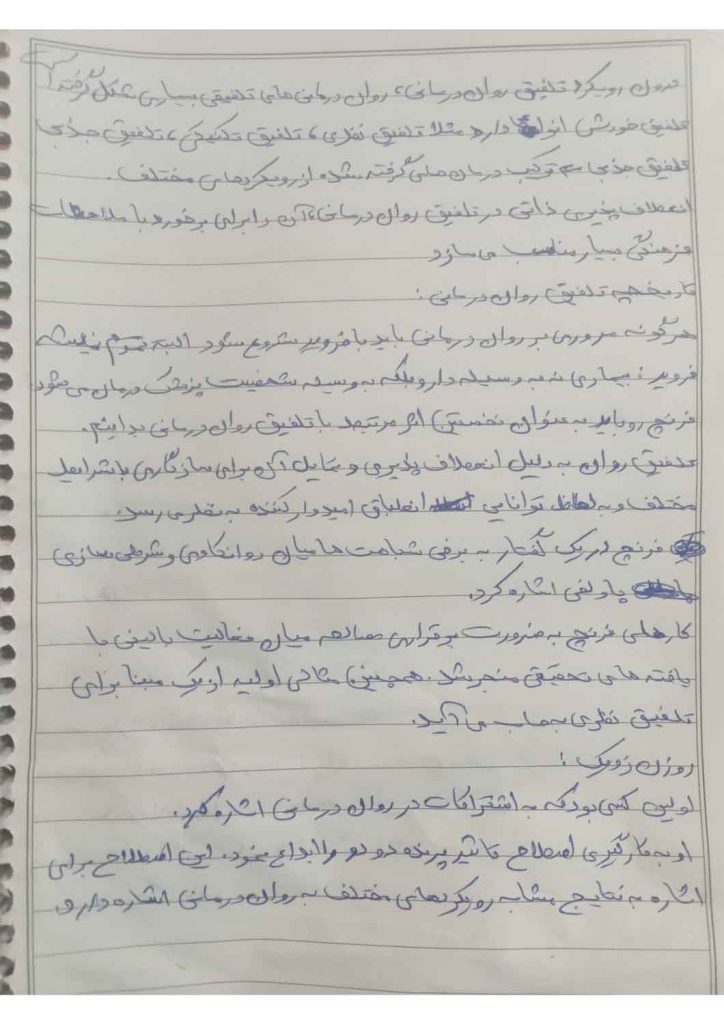 درون رویکرد تلفیق روان درمانی، روان درمانی های تلفیقی بسیاری شکل گرفته
تلفیق خودش انواع دارد مثلا تلفیق نظری، تلفیق تکنیکی، تلفیق جذبی
تلفیق جذبی ← ترکیب درمان های گرفته شده از رویکردهای مختلف.
انعطاف پذیری ذاتی در تلفیق روان درمانی، آن را برای برخورد با ملاحظات
فرهنگی بسیار مناسب می سازد
تاریخچه تلفیق روان درمانی:
هرگونه مروری بر روان درمانی باید با فروید شروع شود
فروید: بیماری نه به وسیله دارو بلکه به وسیله شخصیت پزشک درمان می شود
فرنچ رو باید به عنوان نخستین اثر مرتبط با تلفیق روان درمانی بدانیم.
تلفیق روان به دلیل انعطاف پذیری و تمایل آن برای سازگاری با شرایط
مختلف و به لحاظ توانایی انطباق امیدوار کننده به نظر می رسد.
فرنچ در یک گفتار به برخی شباهت ها میان روانکاوی و شرطی سازی
پاولفی اشاره کرد.
کارهای فرنچ به ضرورت برقراری مصالحه میان فعالیت بالینی با
یافته های تحقیقی منجر شد. همچنین مثالی اولیه از یک مبنا برای
تلفیق نظری به حساب می آید.
روزن زویک:
اولین کسی بود که به اشتراکات در روان درمانی اشاره کرد.
او به کارگیری اصطلاح تاثیر پرنده دو دو را ابداع نمود. این اصطلاح برای
اشاره به نتایج مشابه رویکردهای مختلف به روان درمانی اشاره دارد